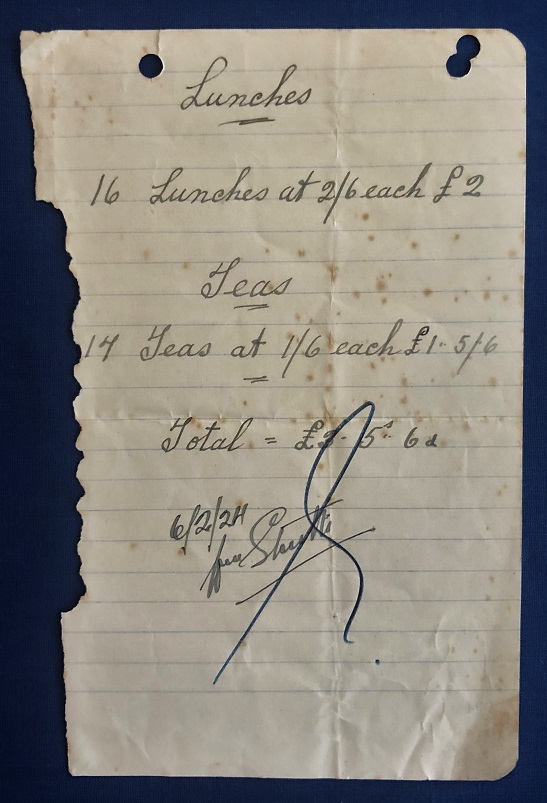 Lunches
16 Lunches at 2/6 each £2
Teas
17 Teas at 1/6 each £1-5/6
Total = £3-5s-6d
6/2/24